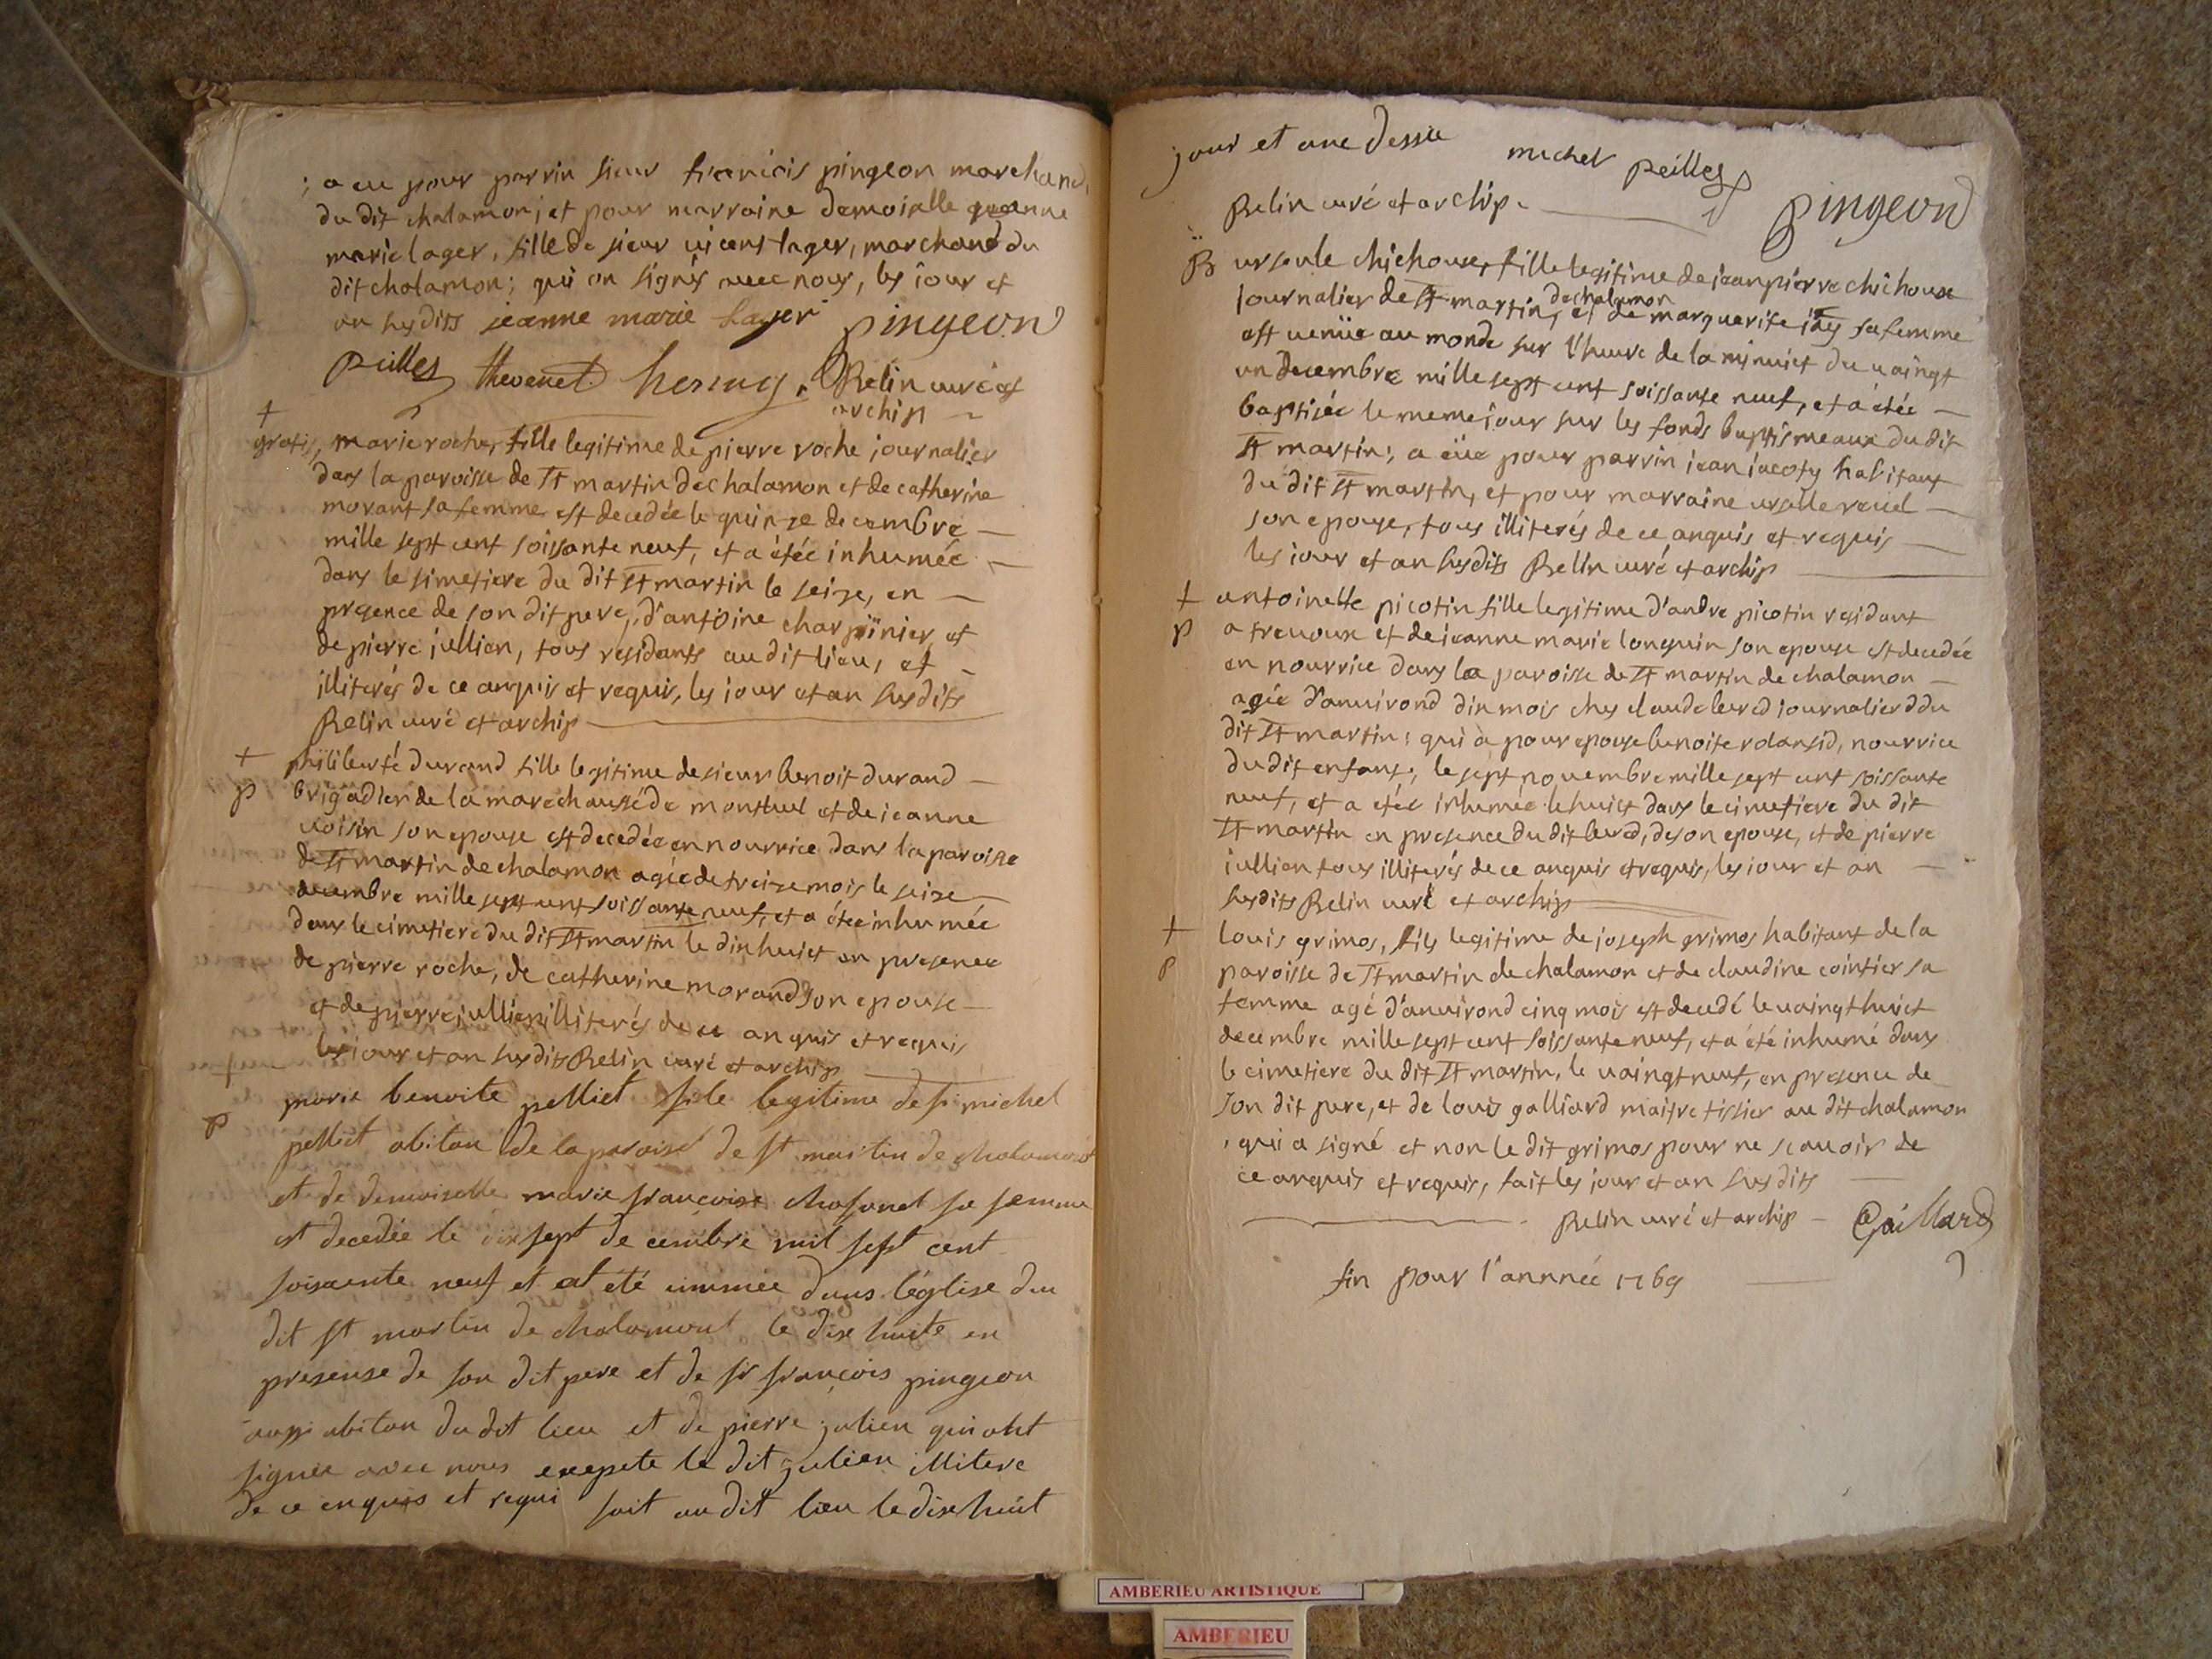 ; a eu pour parrin sieur francois pingeon marchand
du dit chalamon; et pour marraine demoiselle jeanne
marie lager, fille de sieur vicent lager, marchand du
dit chalamon; qui on signés avec nous, les jour et
an susdits jeanne marie Lager pingeon
peilles thevenet Relin curé et
archip
+
gratis, marie roche, fille legitime de pierre roche journalier
dans la paroisse de st martin de chalamon et de catherine
morant sa femme est decedée le quinze decembre
mille sept cent soissante neuf, et a étée inhumée
dans le simetiere du dit st martin le seize, en
presence de son dit pere, d'antoine charpinier, et
de pierre jullien, tous residants au dit lieu, et
illiterés de ce anquis et requis, les jour et an susdits
Relin curé et archip
+ philiberté durand fille legitime de sieur benoit durand
p brigadier de la marechaussé de montluel et de jeanne
voisin son epouse est decedée en nourrice dans la paroisse
de st martin de chalamon agée de treize mois le seize
decembre mille sept cent soissante neuf, et a étée inhumée
dans le cimetiere du dit st martin le dinhuict en presence
de pierre roche, de catherine morand son epouse
et de pierre jullien illiterés de ce anquis et requis
les jour et an susdits Relin curé et archip
+
marie benoite pelliet file legitime de sr michel
p
pelliet abitan de la paroise de st martin de chalamont
et de demoiselle marie françoise chafanet sa femme
est decedée le dix sept de cembre mil sept cent
soisante neuf et at eté inimée dans l'église du
dit st martin de chalamont le dix huite en
presense de son dit pere et de sr françois pingeon
aussi abitan du dit lieu et de pierre julien qui ont
signée avec nous exepete le dit julien illitere
de ce enquis et requi fait au dit lieu le dix huit
jour et ane dessu michel peilles
Relin curé et archip. pingeon
B ursoule chichoux, fille legitime de jean pierre chichoux
de chalamon
journalier de st martin, et de marguerite sa femme
est venüe au monde sur l'huure de la minuict du vaingt
un decembre mille sept cent soissante neuf, et a étée
baptisée le meme jour sur les fonds baptismeaux du dit
st martin; a eüe pour parrin jean jacoty habitant
du dit st martin, et pour marraine ursulle revel
son epouse, tous illiterés de ce anquis et requis
les jour et an susdits Relin curé et archip
+ antoinette picotin fille legitime d'andre picotin residant
p a trevoux et de jeanne marie longuin son epouse est decedée
en nourrice dans la paroisse de st martin de chalamon
agée d'anvirond din mois ches claude leured journalier d du
dit st martin; qui a pour epouse benoite nourrice
du dit enfant, le sept novembre mille sept cent soissante
neuf, et a étée inhumée le huict dans le cimetiere du dit
st martin en presence du dit leured, de son epouse, et de pierre
jullien tous illiterés de ce anquis et requis, les jour et an
susdits Relin curé et archip
+ louis grimos, fils legitime de joseph grimos habitant de la
p paroisse de st martin de chalamon et de claudine cointier sa
femme agé d'anvirond cinq mois est decedé le vaingt huict
decembre mille sept cent soissante neuf, et a été inhumé dans
le cimetiere du dit st martin, le vaingt neuf, en presence de
son dit pere, et de louis galliard maitre tissier au dit chalamon
, qui a signé et non le dit grimos pour ne scavoir de
ce anquis et requis, fait les jour et an susdits
Relin curé et archip Gaillard
fin pour l'annnée 1769
AMBERIEU ARTISTIQUE
AMBERIEU